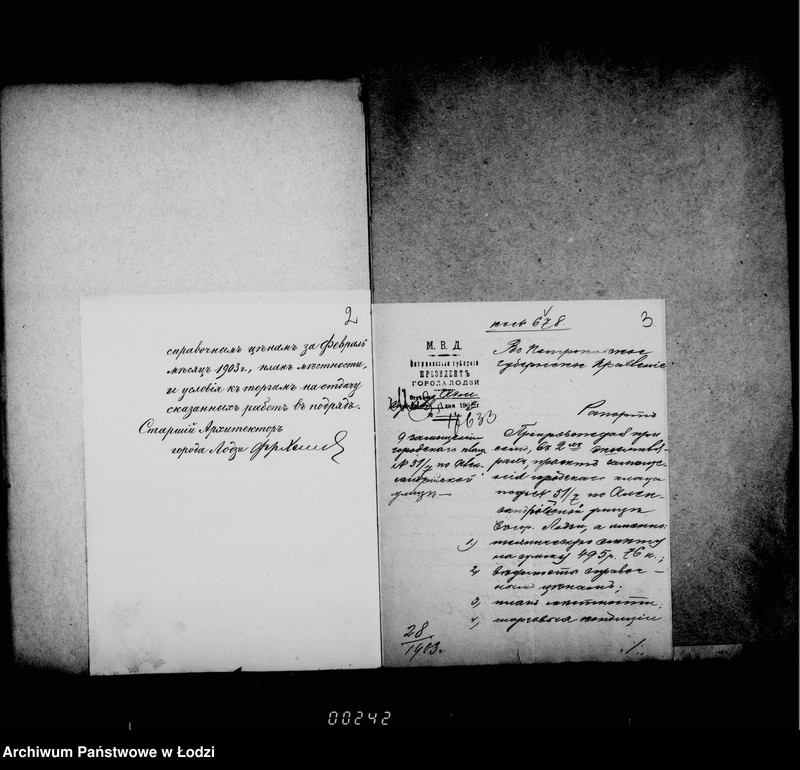 2
справочнымъ цѣнамъ за Февраль
мѣсяцъ 1903 г., планъ мѣстности,
и условія къ торгамъ на отдачу
сказанныхъ работъ въ подрядъ.
Старшій Архитекторъ
города Лодзи
3
678.
М. В. Д.
Петроковской губерніи
ПРЕЗИДЕНТЪ
ГОРОДА ЛОДЗИ
17633
О замощеніи
городского плаца
№ 51/7 по Алек-
сандрійской
улицѣ.—
28/1903 г.
Въ Петроковское
Губернское Правленіе
Рапортъ
Препровождая при
семъ, въ 2хъ экземпля-
рахъ, проектъ замоще-
нія городского плаца
подъ № 51/7 по Алек-
сандрійской улицѣ
въ гор. Лодзи, а именно:
1) техническую смѣту
на сумму 495 р. 76 к.;
2) вѣдомость справоч-
нымъ цѣнамъ;
3) планъ мѣстности;
4) торговыя кондиціи
./.
00242
Archiwum Państwowe w Łodzi